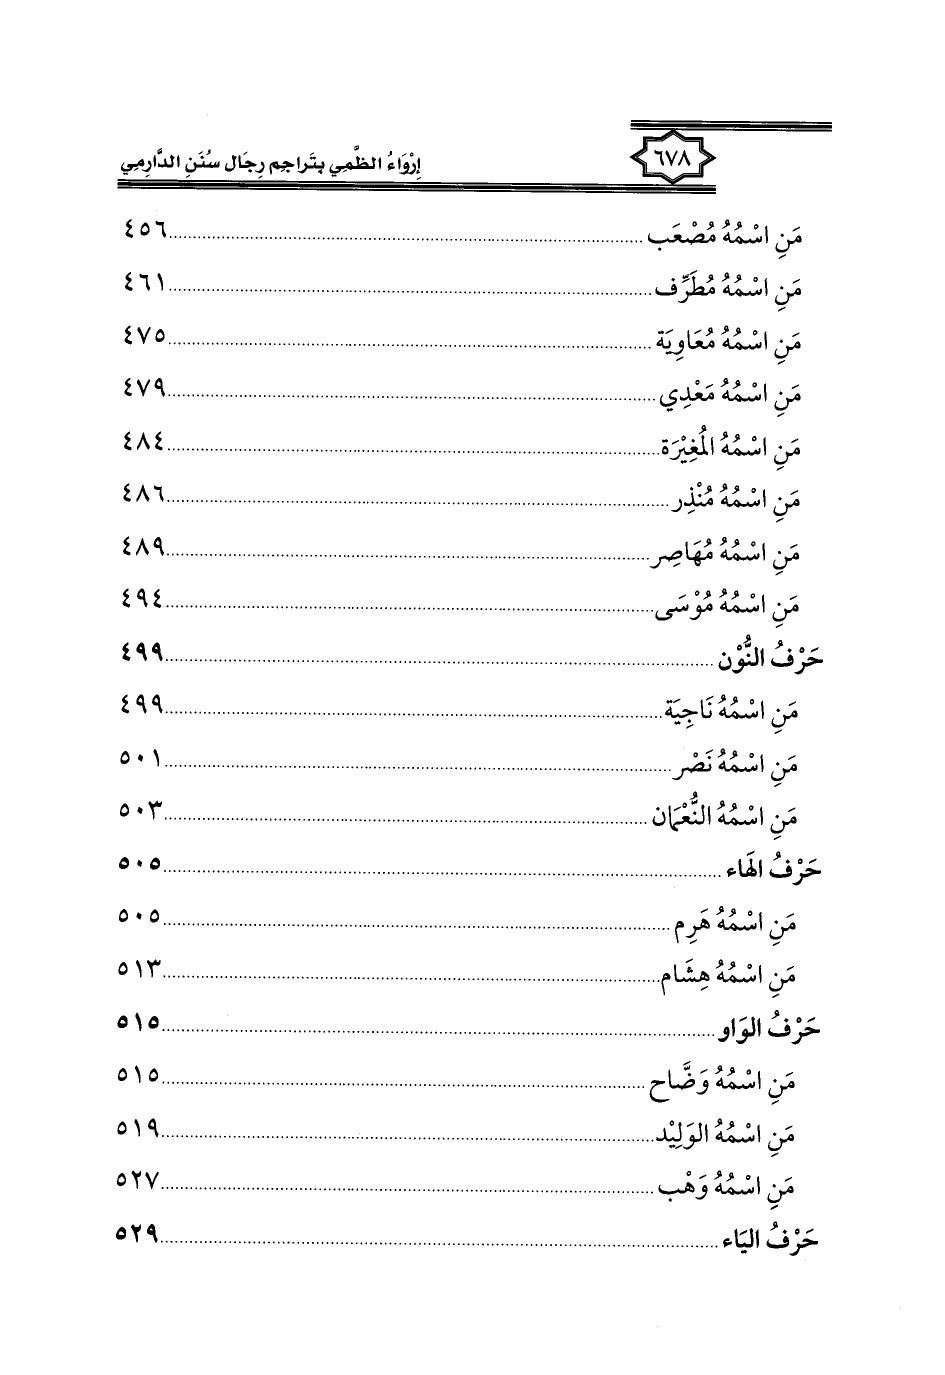 ٦٧٨
إِرْوَاءُ الظَّمِي بِتَراجِم رِجَال سُنَنِ الدَّارِمِي
مَنِ اسْمُهُ مُصْعَب ........ ٤٥٦
مَنِ اسْمُهُ مُطَرِّف ........ ٤٦١
مَنِ اسْمُهُ مُعَاوِيَة ........ ٤٧٥
مَنِ اسْمُهُ مَعْدِي ........ ٤٧٩
مَنِ اسْمُهُ المُغِيْرَة ........ ٤٨٤
مَنِ اسْمُهُ مُنْذِر ........ ٤٨٦
مَنِ اسْمُهُ مُهَاصِر ........ ٤٨٩
مَنِ اسْمُهُ مُوْسَى ........ ٤٩٤
حَرْفُ النُّوْن ........ ٤٩٩
مَنِ اسْمُهُ نَاجِيَة ........ ٤٩٩
مَنِ اسْمُهُ نَصْر ........ ٥٠١
مَنِ اسْمُهُ النُّعْمَان ........ ٥٠٣
حَرْفُ الهَاء ........ ٥٠٥
مَنِ اسْمُهُ هَرِم ........ ٥٠٥
مَنِ اسْمُهُ هِشَام ........ ٥١٣
حَرْفُ الوَاو ........ ٥١٥
مَنِ اسْمُهُ وَضَّاح ........ ٥١٥
مَنِ اسْمُهُ الوَلِيْد ........ ٥١٩
مَنِ اسْمُهُ وَهْب ........ ٥٢٧
حَرْفُ اليَاء ........ ٥٢٩